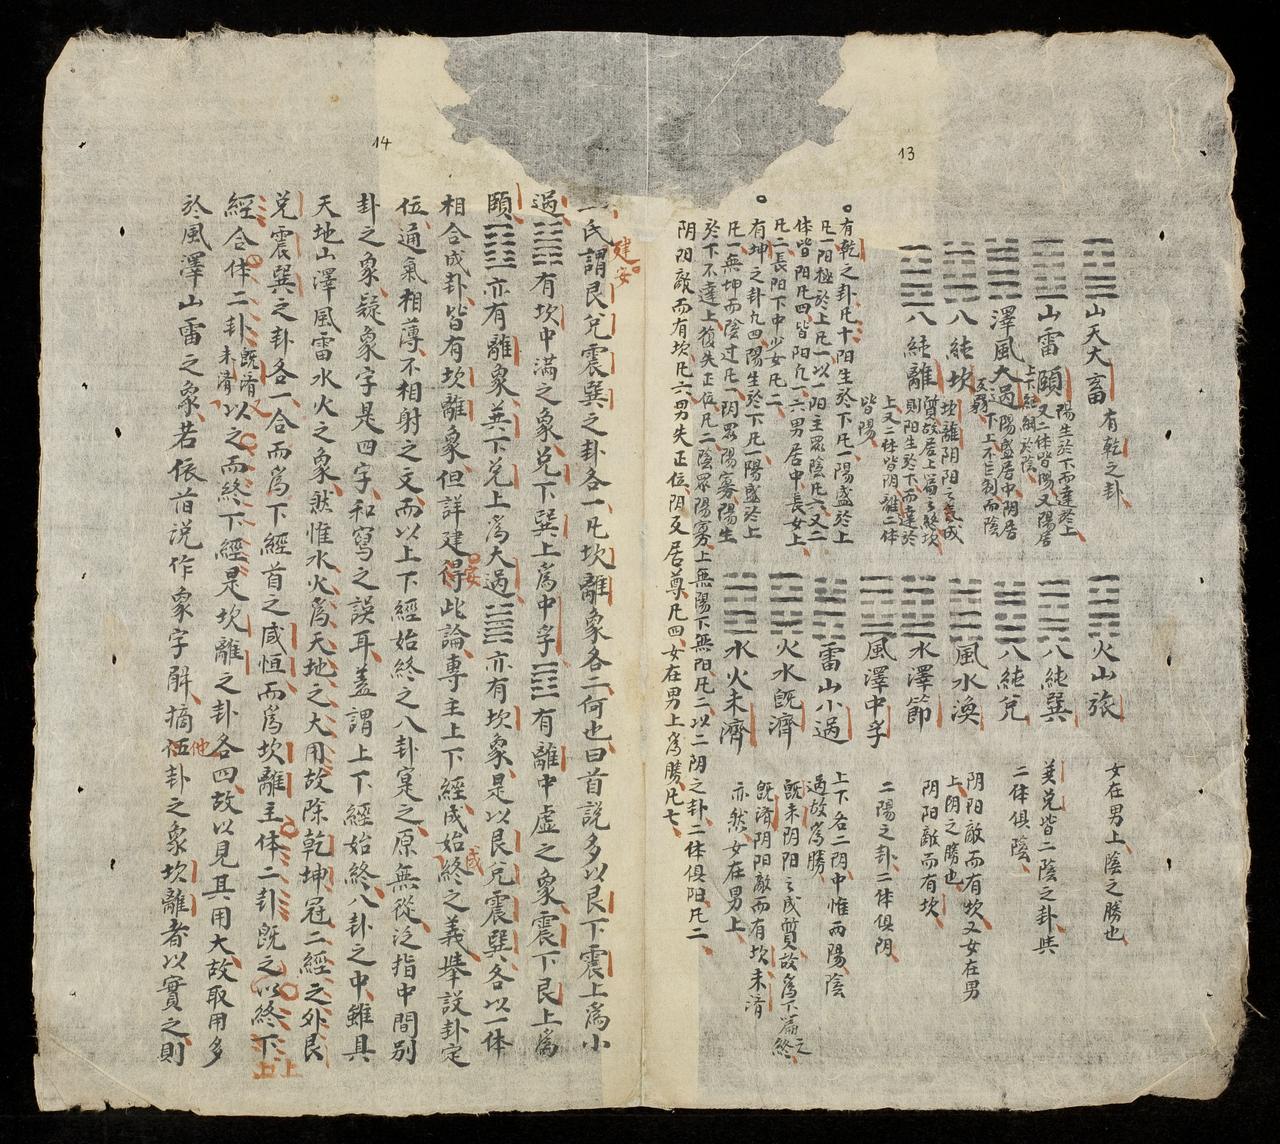 13
山天大畜 有乾之卦
山雷頤 陽生於下而達於上
又二体皆陽又陽居
上下
澤風大過 陽盛居中阴居
八純坎 坎離阴阳之
八純離 則阳生於下而達於
上又二体皆阴離二体
皆陽
有乾之卦凡十阳生於下凡一陽盛於
凡一阳極於上凡一以一阳主眾陰凡六又二
体皆阳凡四皆阳凡一六男居中長女上
凡二長阳下中少女凡二
有坤之卦凡四陽生於下凡一陽盛於上
凡一無坤而陰过凡一阴眾陽寡陽生
於下不達上復失正位凡二陰眾陽寡上無陽下無阳凡二以二阴之卦二体俱阳凡二
阴阳敵而有坎凡二男失正位阴反居尊凡四女在男上為勝凡七
火山旅 女在男上陰之勝也
八純巽 巽兑皆二陰之卦
八純兑 二体俱陰
風水渙 阴阳敵而有坎又女在男
上阴之勝也
水澤節 阴阳敵而有坎
風澤中孚 二陽之卦二体俱阴
雷山小過 上下各二阴中惟两陽陰
過故為勝
火水旣濟 旣未阴阳之成質故為下篇之終
旣濟阴阳敵而有坎未濟
水火未濟 亦然女在男上
14
氏謂艮兑震巽之卦各一凡坎離象各二何也曰首説多以艮下震上為小
建安
過䷽有坎中满之象兑下巽上為中孚䷼有離中虚之象震下艮上為
頤䷚亦有離象巽下兑上為大過䷛亦有坎象是以艮兑震巽各以一体
相合成卦皆有坎離象但詳建得此論專主上下經成始終之義擧設卦定
安
成
位通氣相薄不相射之文而以上下經始終之八卦寔之原無從泛指中間别
卦之象疑象字是四字和寫之誤耳盖謂上下經始終八卦之中雖具
天地山澤風雷水火之象然惟水火為天地之大用故除乾坤冠二經之外艮
兑震巽之卦各一合而為下經首之咸恒而為坎離主体二卦旣之以終下
上上
經合体二卦旣濟未濟以之而終下經是坎離之卦各四故以見其用大故取用多
於風澤山雷之象若依首説作象字觧摘伍卦之象坎離者以實之則
他